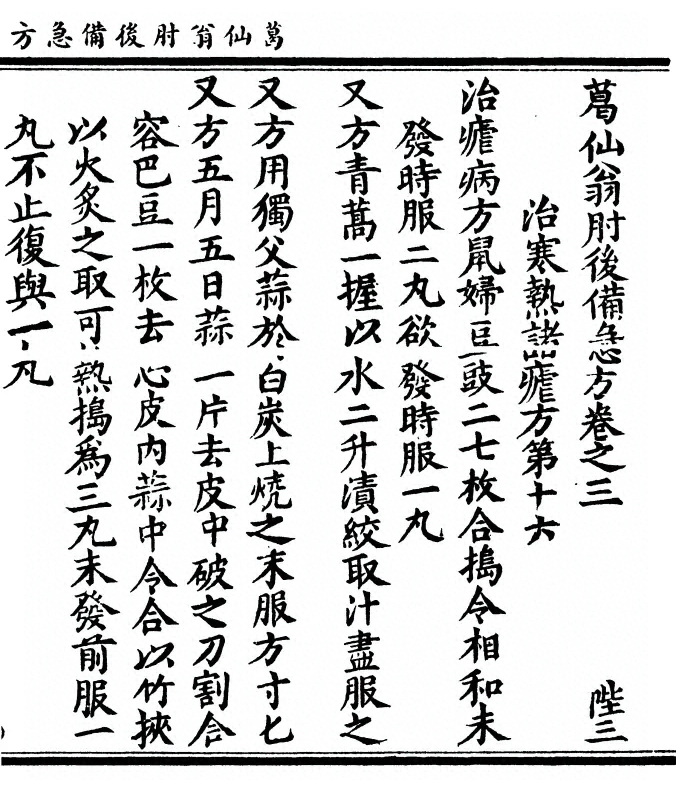 葛仙翁肘後備急方
葛仙翁肘後備急方卷之三 陛三
治寒熱諸瘧方第十六
治瘧病方鼠婦豆豉二七枚合搗令相和未
發時服二丸欲發時服一丸
又方青蒿一握以水二升漬絞取汁盡服之
又方用獨父蒜於白炭上燒之末服方寸匕
又方五月五日蒜一片去皮中破之刀割合
容巴豆一枚去心皮內蒜中令合以竹挾
以火炙之取可熱搗為三丸未發前服一
丸不止復與一丸